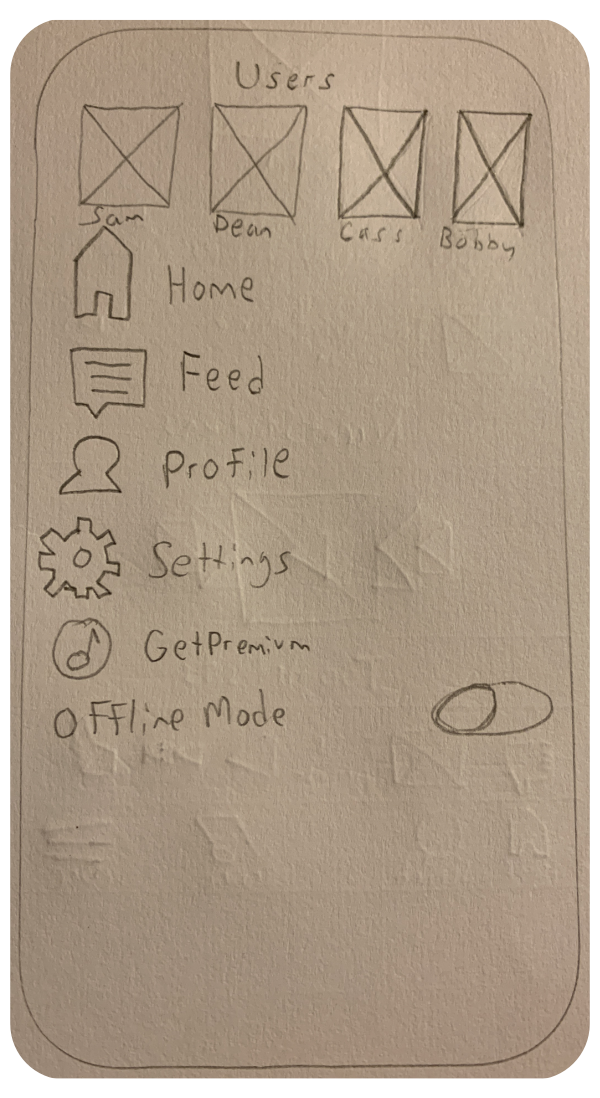 Users
Sam Dean Cass Bobby
Home
Feed
Profile
Settings
GetPremium
Offline Mode